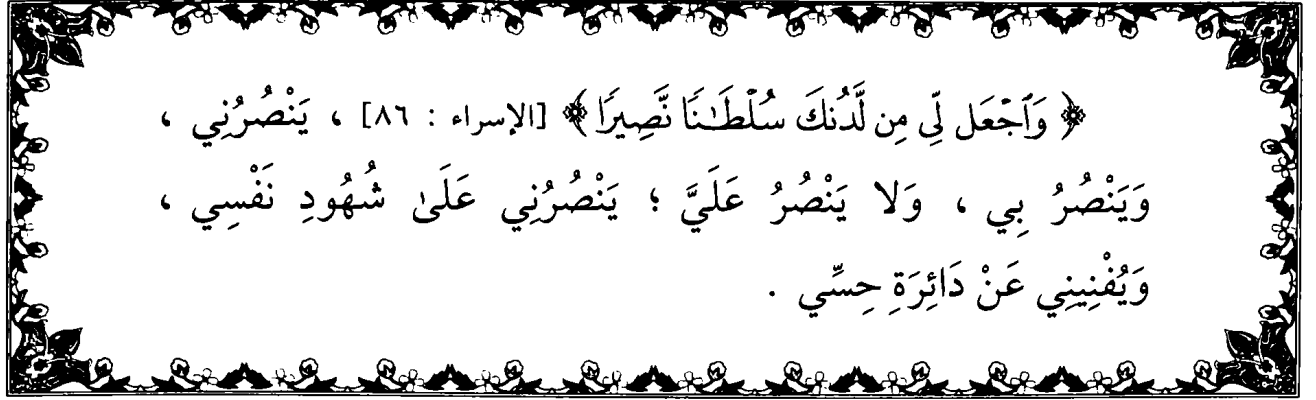 ﴿ وَٱجْعَل لِّى مِن لَّدُنكَ سُلْطَـٰنًا نَّصِيرًا ﴾ [الإسراء : ٨٦] ، يَنْصُرُنِي ،
وَيَنْصُرُ بِي ، وَلا يَنْصُرُ عَلَيَّ ؛ يَنْصُرُنِي عَلَىٰ شُهُودِ نَفْسِي ،
وَيُفْنِينِي عَنْ دَائِرَةِ حِسِّي .